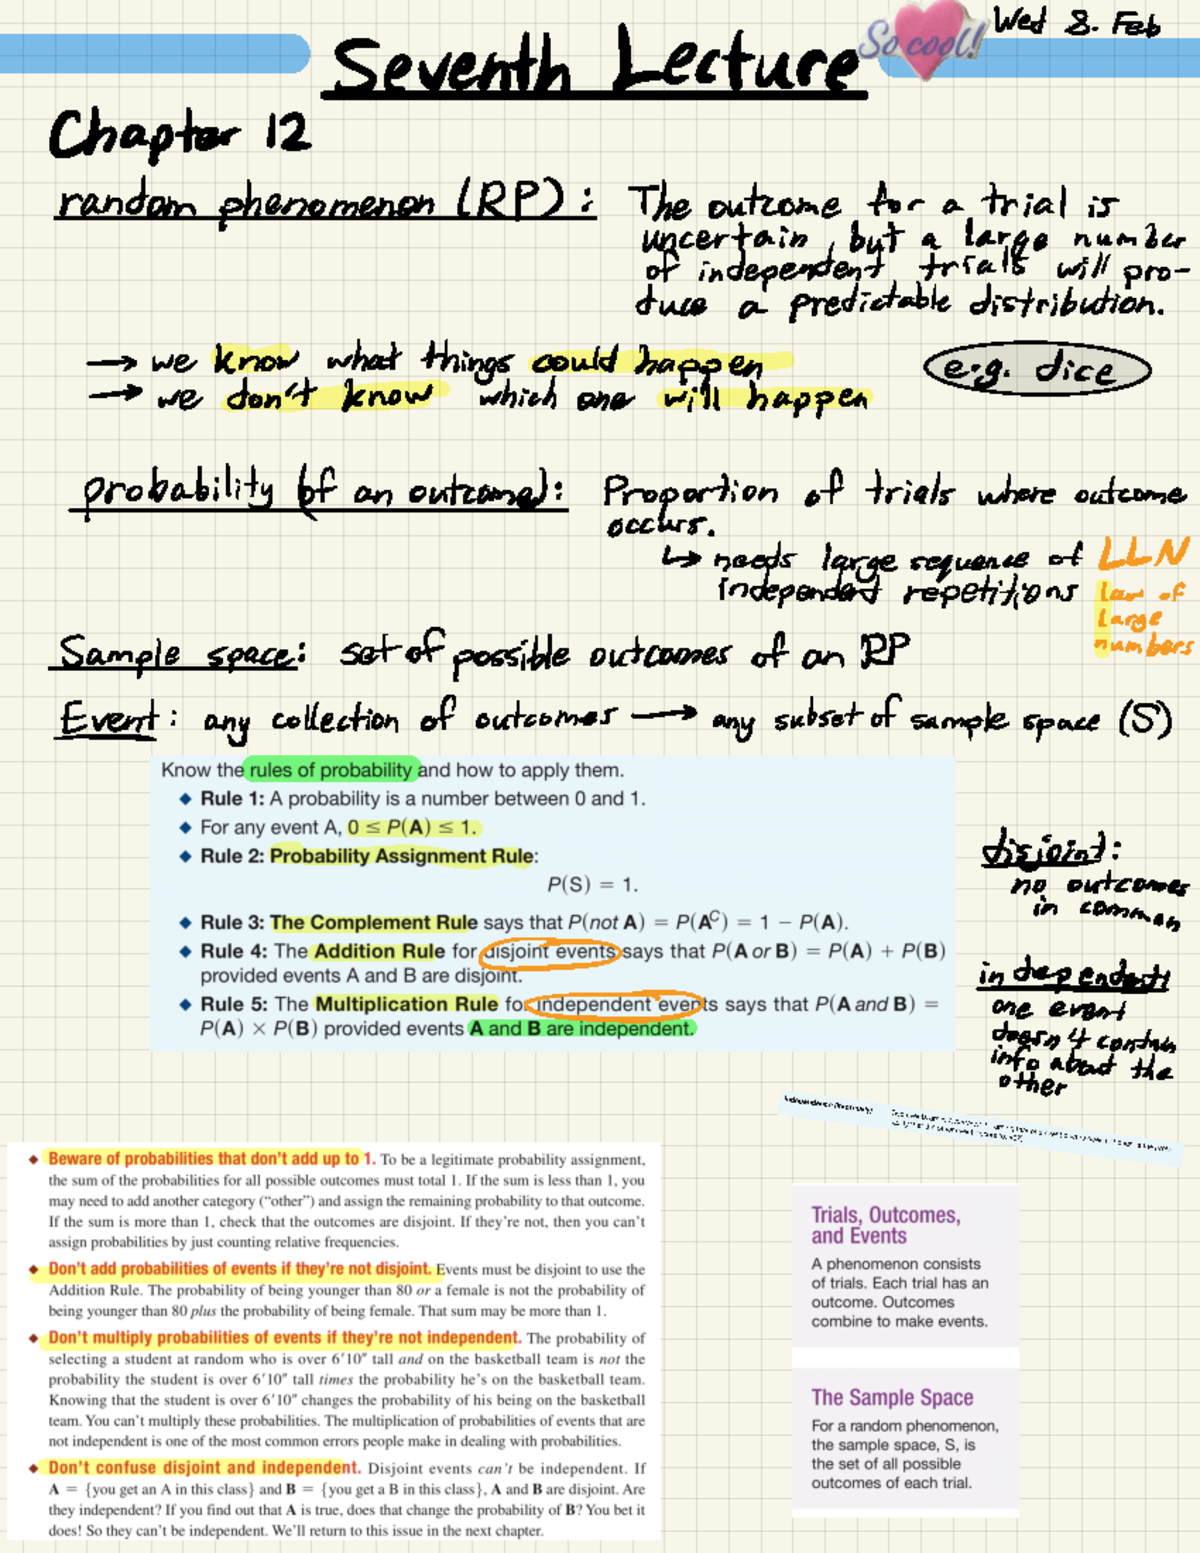 So cool!
Wed 8. Feb
Seventh Lecture
Chapter 12
random phenomenon (RP): The outcome for a trial is
uncertain, but a large number
of independent trials will pro-
duce a predictable distribution.
→ we know what things could happen
→ we don't know which one will happen
e.g. dice
probability (of an outcome): Proportion of trials where outcome
occurs.
↳ needs large sequence of
independent repetitions
LLN
law of
large
numbers
Sample space: set of possible outcomes of an RP
Event: any collection of outcomes → any subset of sample space (S)
Know the rules of probability and how to apply them.
◆ Rule 1: A probability is a number between 0 and 1.
◆ For any event A, 0 ≤ P(A) ≤ 1.
◆ Rule 2: Probability Assignment Rule:
P(S) = 1.
◆ Rule 3: The Complement Rule says that P(not A) = P(Aᶜ) = 1 − P(A).
◆ Rule 4: The Addition Rule for disjoint events says that P(A or B) = P(A) + P(B)
provided events A and B are disjoint.
◆ Rule 5: The Multiplication Rule for independent events says that P(A and B) =
P(A) × P(B) provided events A and B are independent.
disjoint:
no outcomes
in common
independent:
one event
doesn't contain
info about the
other
◆ Beware of probabilities that don't add up to 1. To be a legitimate probability assignment,
the sum of the probabilities for all possible outcomes must total 1. If the sum is less than 1, you
may need to add another category ("other") and assign the remaining probability to that outcome.
If the sum is more than 1, check that the outcomes are disjoint. If they're not, then you can't
assign probabilities by just counting relative frequencies.
◆ Don't add probabilities of events if they're not disjoint. Events must be disjoint to use the
Addition Rule. The probability of being younger than 80 or a female is not the probability of
being younger than 80 plus the probability of being female. That sum may be more than 1.
◆ Don't multiply probabilities of events if they're not independent. The probability of
selecting a student at random who is over 6′10″ tall and on the basketball team is not the
probability the student is over 6′10″ tall times the probability he's on the basketball team.
Knowing that the student is over 6′10″ changes the probability of his being on the basketball
team. You can't multiply these probabilities. The multiplication of probabilities of events that are
not independent is one of the most common errors people make in dealing with probabilities.
◆ Don't confuse disjoint and independent. Disjoint events can't be independent. If
A = {you get an A in this class} and B = {you get a B in this class}, A and B are disjoint. Are
they independent? If you find out that A is true, does that change the probability of B? You bet it
does! So they can't be independent. We'll return to this issue in the next chapter.
Trials, Outcomes,
and Events
A phenomenon consists
of trials. Each trial has an
outcome. Outcomes
combine to make events.
The Sample Space
For a random phenomenon,
the sample space, S, is
the set of all possible
outcomes of each trial.